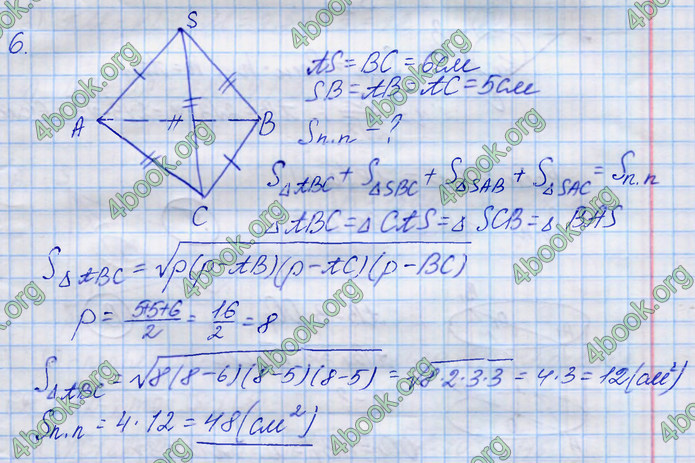 6.
S
A
B
C
AS = BC = 6см
SB = AB = AC = 5см
Sп.п = ?
S△ABC + S△SBC + S△SAB + S△SAC = Sп.п
△ABC = △CAS = △SCB = △BAS
S△ABC = √p(p-AB)(p-AC)(p-BC)
p = (5+5+6)/2 = 16/2 = 8
S△ABC = √8(8-6)(8-5)(8-5) = √8·2·3·3 = 4·3 = 12(см²)
Sп.п = 4·12 = 48(см²)
4book.org